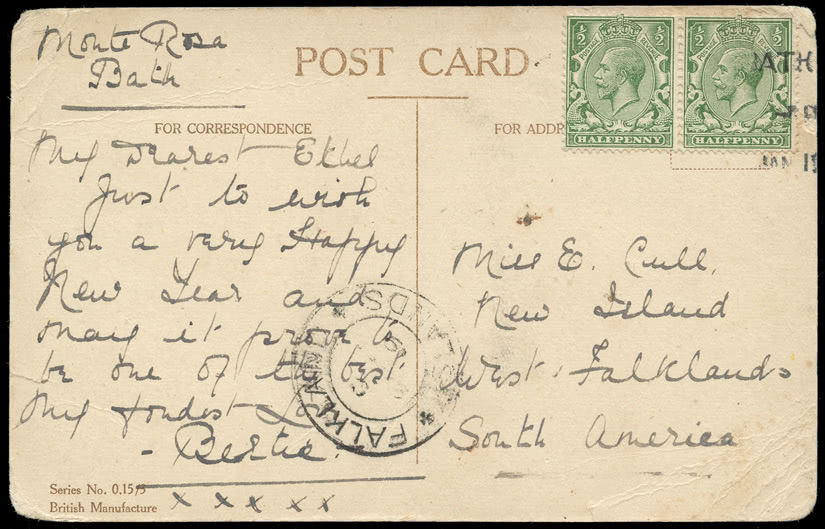 Monte Rosa
Bath
POST CARD
FOR CORRESPONDENCE
My Dearest Ethel
Just to wish
you a very Happy
New Year and
may it prove to
be one of the best
My fondest Love
- Bertie.
x x x x x
Series No. 0.15/5
British Manufacture
FOR ADDR
½ ½
HALFPENNY
½ ½
HALFPENNY
BATH
JAN 19
Miss E. Cull,
New Island
West Falklands
South America
FALKLAND ISLANDS